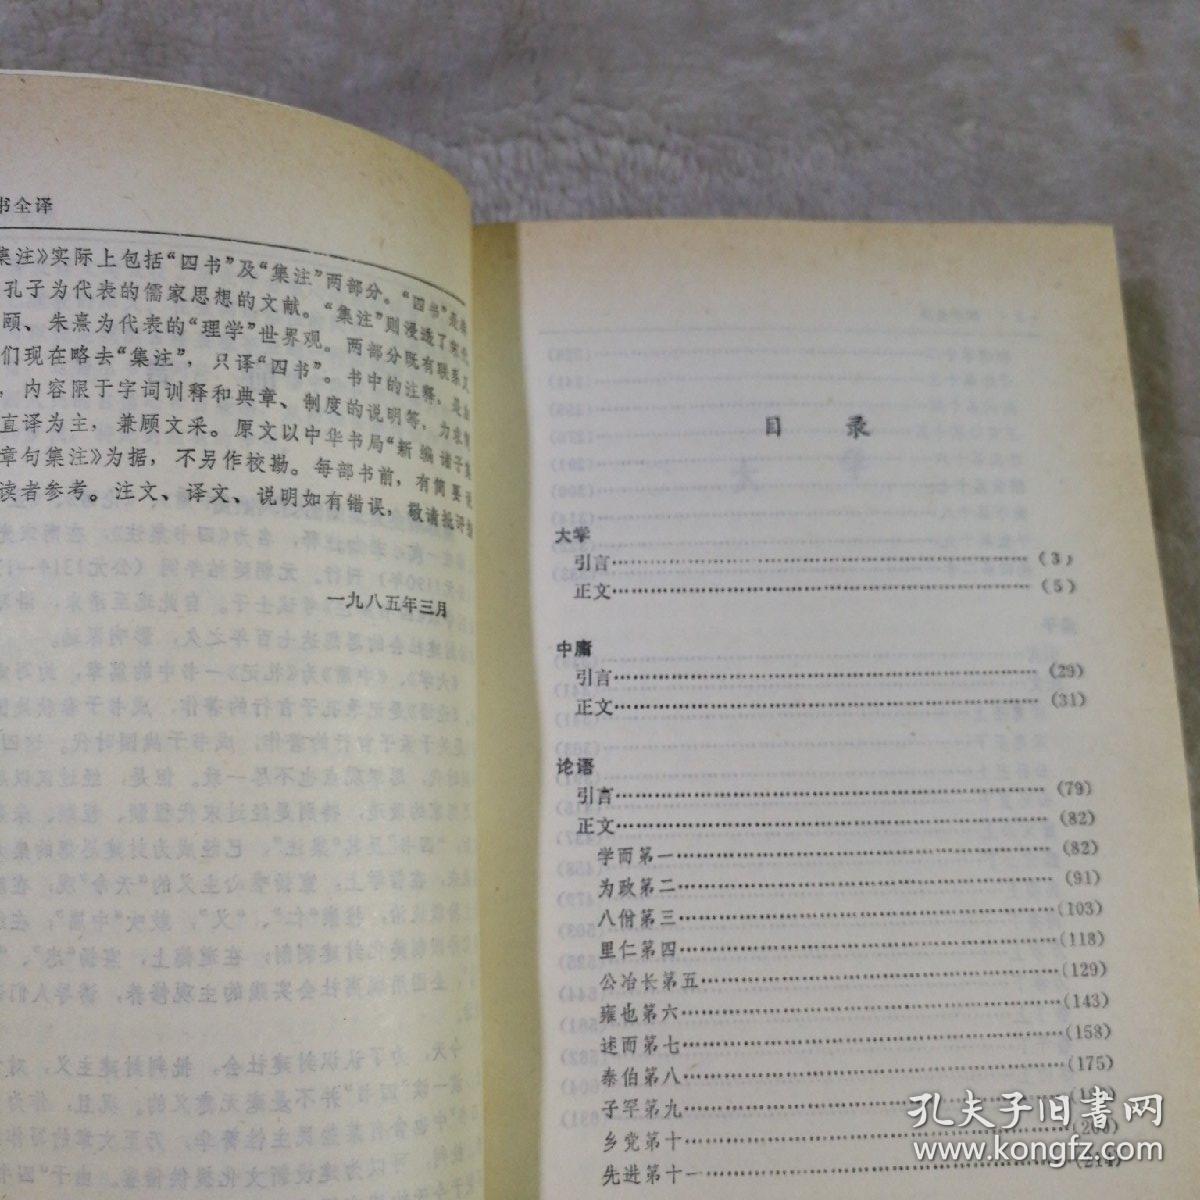 书全译
集注》实际上包括“四书”及“集注”两部分。“四书”是
孔子为代表的儒家思想的文献。“集注”则浸透了宋代
颐、朱熹为代表的“理学”世界观。两部分既有联系又
们现在略去“集注”，只译“四书”。书中的注释，是
，内容限于字词训释和典章、制度的说明等，力求
直译为主，兼顾文采。原文以中华书局“新编诸子集
章句集注》为据，不另作校勘。每部书前，有简要说
读者参考。注文、译文、说明如有错误，敬请批评
一九八五年三月
目 录
大学
引言……(3)
正文……(5)
中庸
引言……(29)
正文……(31)
论语
引言……(79)
正文……(82)
学而第一……(82)
为政第二……(91)
八佾第三……(103)
里仁第四……(118)
公冶长第五……(129)
雍也第六……(143)
述而第七……(158)
泰伯第八……(175)
子罕第九……
乡党第十……
先进第十一……(214)
孔夫子旧书网
www.kongfz.com